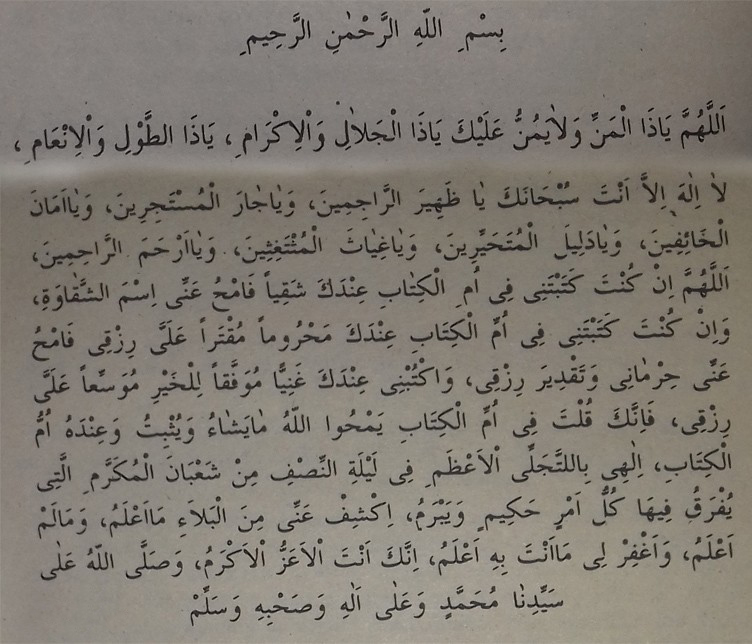 بِسْمِ اللّٰهِ الرَّحْمٰنِ الرَّحِيمِ
اَللّٰهُمَّ يَاذَا الْمَنِّ وَلَايَمُنُّ عَلَيْكَ يَاذَا الْجَلَالِ وَالْاِكْرَامِ، يَاذَا الطَّوْلِ وَالْاِنْعَامِ،
لَا اِلٰهَ اِلَّا اَنْتَ سُبْحَانَكَ يَا ظَهِيرَ الرَّاجِمِينَ، وَيَاجَارَ الْمُسْتَجِرِينَ، وَيَااَمَانَ
الْخَائِفِينَ، وَيَادَلِيلَ الْمُتَحَيِّرِينَ، وَيَاغِيَاثَ الْمُتَغِثِينَ، وَيَااَرْحَمَ الرَّاحِمِينَ،
اَللّٰهُمَّ اِنْ كُنْتَ كَتَبْتَنِى فِى اُمِ الْكِتَابِ عِنْدَكَ شَقِياً فَامْحُ عَنِّى اِسْمَ الشَّقَاوَةِ،
وَاِنْ كُنْتَ كَتَبْتَنِى فِى اُمِّ الْكِتَابِ عِنْدَكَ مَحْرُوماً مُقْتَراً عَلَىَّ رِزْقِى فَامْحُ
عَنِّى حِرْمَانِى وَتَقْدِيرَ رِزْقِى، وَاكْتُبْنِى عِنْدَكَ غَنِيًّا مُوَفَّقاً لِلْخَيْرِ مُوَسَّعاً عَلَىَّ
رِزْقِى، فَاِنَّكَ قُلْتَ فِى اُمِّ الْكِتَابِ يَمْحُوا اللّٰهُ مَايَشَاءُ وَيُثْبِتُ وَعِنْدَهُ اُمُّ
الْكِتَابِ، اِلٰهِى بِاللتَّجَلِّى الْاَعْظَمِ فِى لَيْلَةِ النِّصْفِ مِنْ شَعْبَانَ الْمُكَرَّمِ الَّتِى
يُفْرَقُ فِيهَا كُلُّ اَمْرٍ حَكِيمٍ وَيَبْرَمُ، اِكْشِفْ عَنِّى مِنَ الْبَلَاءِ مَااَعْلَمُ، وَمَالَمْ
اَعْلَمُ، وَاَغْفِرْ لِى مَااَنْتَ بِهِ اَعْلَمُ، اِنَّكَ اَنْتَ الْاَعَزُّ الْاَكْرَمُ، وَصَلَّى اللّٰهُ عَلٰى
سَيِّدِنَا مُحَمَّدٍ وَعَلٰى اٰلِهِ وَصَحْبِهِ وَسَلِّمْ